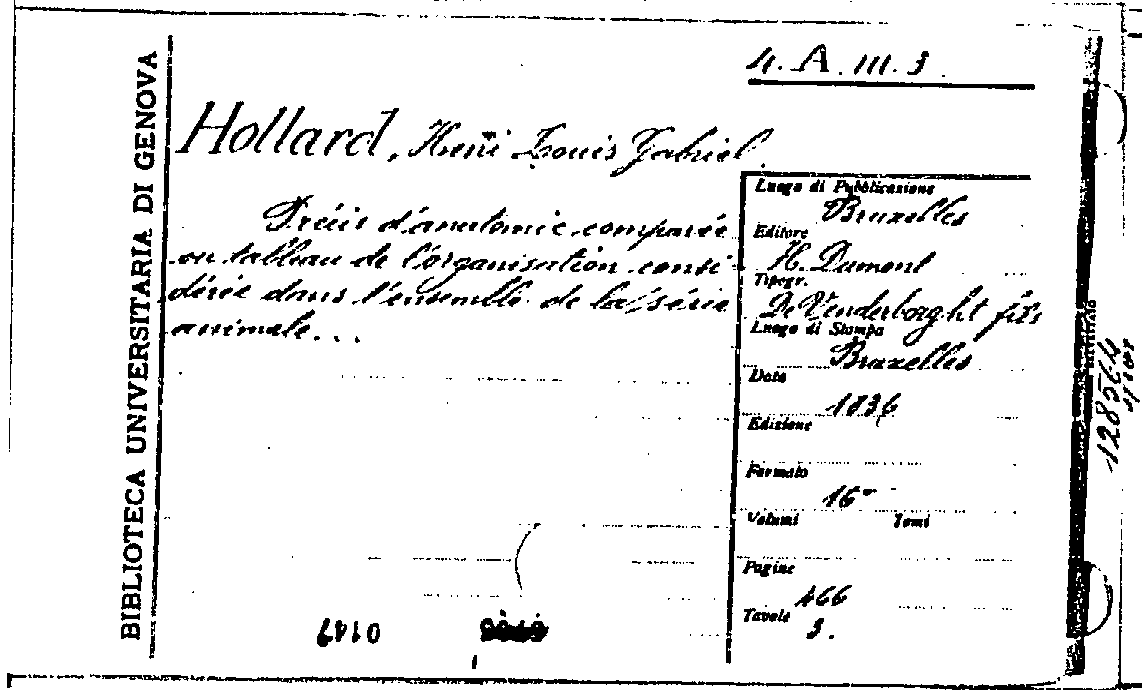 4. A. III. 3
BIBLIOTECA UNIVERSITARIA DI GENOVA
Hollard, Henri Louis Gabriel
Précis d'anatomie comparée
ou tableau de l'organisation consi-
dérée dans l'ensemble de la série
animale...
Luogo di Pubblicazione
Bruxelles
Editore
H. Dumont
Tipogr.
De Vroom fils
Luogo di Stampa
Bruxelles
Data
1836
Edizione
Formato
16°
Volumi Tomi
Pagine
466
Tavole
3.
128564
0147